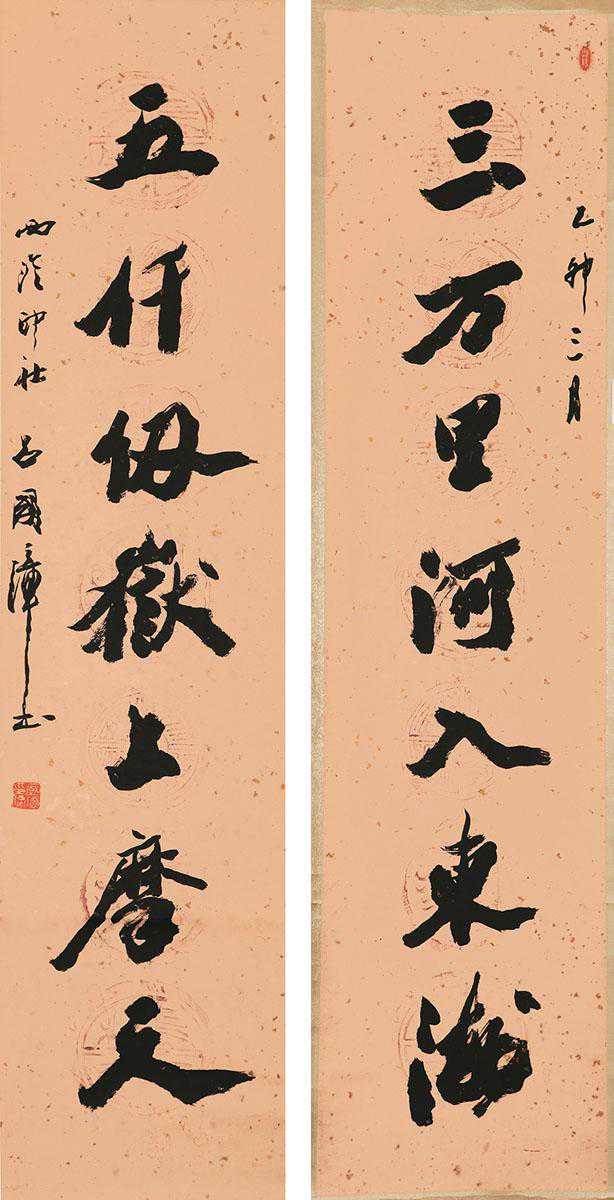 乙卯三月
三万里河入東海
五仟仭嶽上摩天
西泠印社 吕國璋书